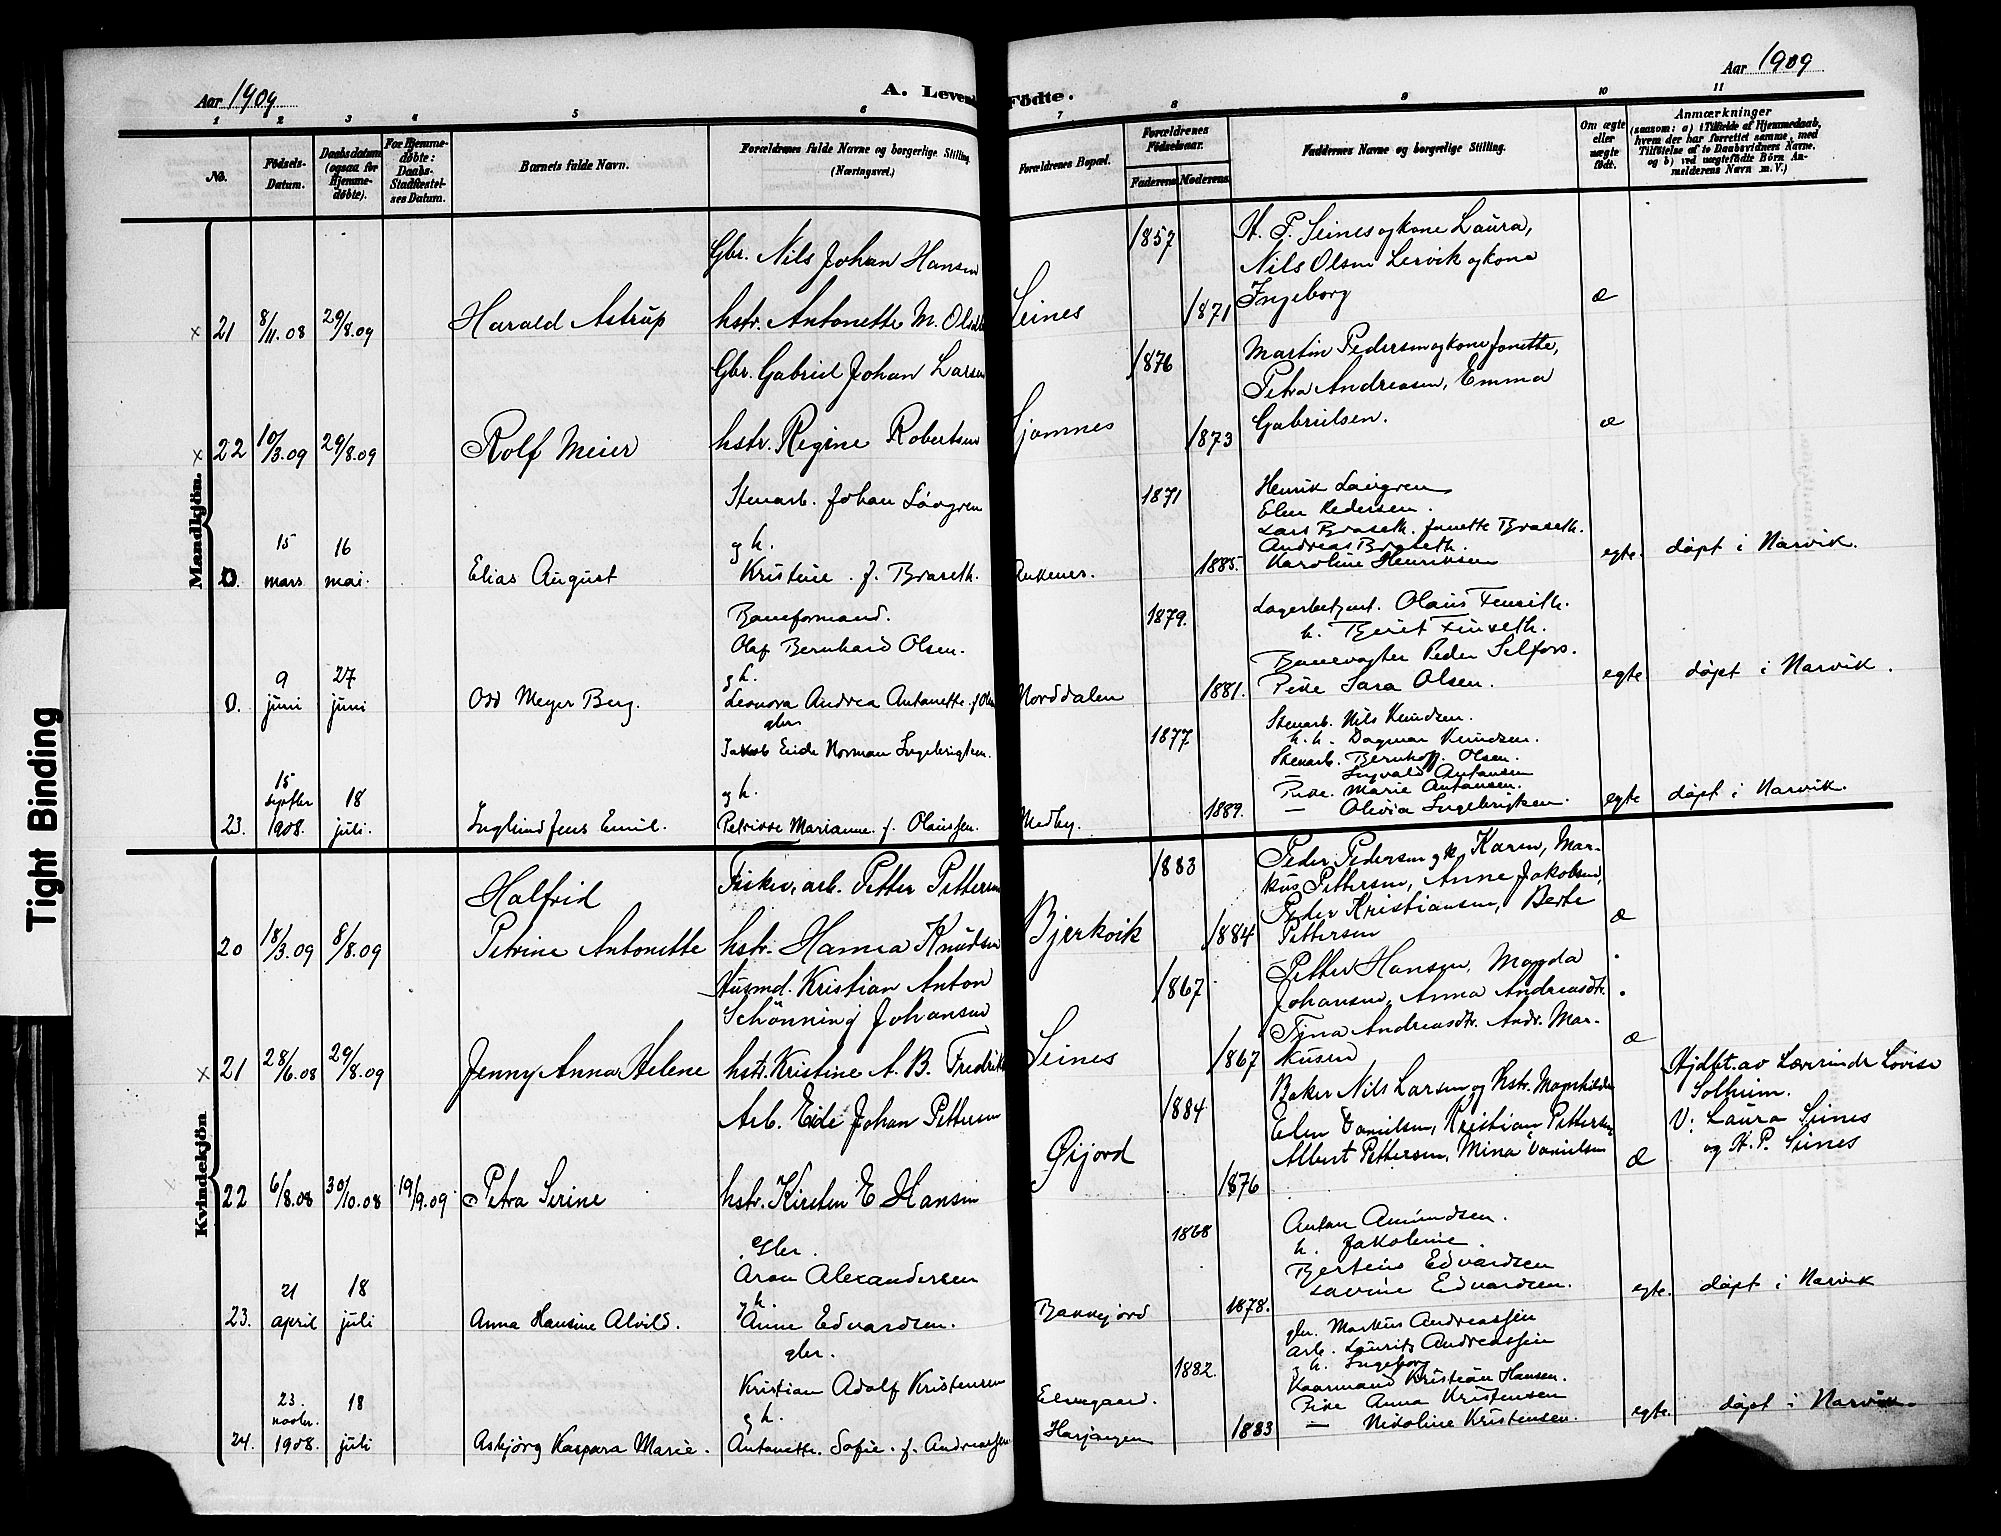 Aar 1909
A. Levende Fødte.
Aar 1909
1 2 3 4 5 6 7 8 9 10 11
No.
Fødsels-
Datum.
Daabsdatum
(ogsaa for
Hjemme-
døbte).
For Hjemme-
døbte:
Daabs-
Stadfæstel-
ses Datum.
Barnets fulde Navn.
Forældrenes fulde Navne og borgerlige Stilling.
(Næringsvei.)
Forældrenes Bopæl.
Forældrenes
Fødselsaar.
Faderens Moderens
Faddernes Navne og borgerlige Stilling.
Om ægte
eller
uægte
født.
Anmærkninger
(saasom: a) i Tilfælde af Hjemmedaab,
hvem der har forrettet samme, med
Tilføielse af to Daabsvidners Navne,
og b) ved uægtefødte Børn An-
melderens Navn m. V.)
Mandkjøn.
Gbr. Nils Johan Hansen
1857
H. P. Seines og kone Laura,
Nils Olsen Lervik og kone
Ingeborg
x 21 8/11.08 29/8.09 Harald Astrup hstr. Antonette M. Seines 1871 æ
Gbr. Gabriel Johan Larsen
1876
Martin Pedersen og kone Jonette,
Petra Andreasen, Emma
Gabrielsen.
x 22 10/3.09 29/8.09 Rolf Meier hstr. Regine Robertsen 1873 æ
Stenarb. Johan Lövgren
1871
Henrik
Elen Pedersen.
Lars Braseth. Janette Braseth.
Andreas Braseth.
Karoline Henriksen
0. 15 mars 16 mai. Elias August
g h.
Kristine . f. Braseth. Ankenes. 1885. egte. døpt i Narvik.
Baneformand.
Olaf Bernhard Olsen.
1879.
Lagerbetjent. Olaus
h. Beret
Banevogter Peder Selfors.
Pike Sara Olsen.
0. 9 juni 27 juni Odd Meyer Berg.
g h.
Leonora Andrea Antonette. Norddalen 1881. egte døpt i Narvik.
gbr
Jakob Eide Norman Ingebrigtsen.
1877
Stenarb. Nils Knudsen.
h. h. Dagmar Knudsen.
Stenarb. Bernhoff. Olsen.
Ingvald Antonsen
Pike. Marie Antonsen.
— Olevia Ingebrigtsen.
23. 15 septbr 1908. 18 juli. Jens Emil.
g h.
Petrisse Marianne. f. Olaussen. Medby. 1889. egte døpt i Narvik.
Kvindekjøn
Fisker, arb. Petter Pettersen
1883
Peder Pedersen g k. Karen, Mar-
kus Pettersen, Anne Jakobsen,
Peder Kristiansen, Berte
Pettersen
20 18/3.09 8/8.09 Halfrid
Petrine Antonette hstr. Hanna Knudsen Bjerkvik 1884 æ
Husmd. Kristian Anton
Schönning Johansen
1867
Petter Hansen, Magda
Johansen, Anna Andreasdtr.
Tina Andreasdtr. Andr. Mar-
kusen
x 21 28/6.08 29/8.09 Jenny Anna Helene hstr. Kristine A. B. Fredrik Seines 1867 æ
Arb. Eide Johan Pettersen
1884
Baker Nils Larsen og hstr. Magnhilde
Elen Danielsen, Kristian Pettersen,
Albert Pettersen, Mina Danielsen
Hjdbt. av Lærerinde Lovise
Solheim.
V: Laura Seines
og H. P. Seines
22 6/8.08 30/10.08 19/9.09 Petra Serine hstr. Kirsten E Hansen Øijord 1876 æ
Gbr.
Aron Alexandersen
1868
Anton Amundsen.
h. Jakobine.
Berteus Edvardsen
Lovine Edvardsen.
23. 21 april 18 juli Anna Hansine Alvild.
g h.
Anne Edvardsen. 1878. egte. døpt i Narvik
gbr.
Kristian Adolf Kristensen
1882.
gbr. Markus Andreassen
arb. Laurits Andreassen
g h. Ingeborg
Kaarmand Kristian Hansen.
Pike Anna Kristensen
— Nikoline Kristensen.
24. 23. novbr. 1908. 18 juli Asbjørg Kaspara Marie.
g h.
Antonette. Sofie. f. Andreassen
Elvegaard.
Harjangen 1883 egte. døpt i Narvik.
Tight Binding